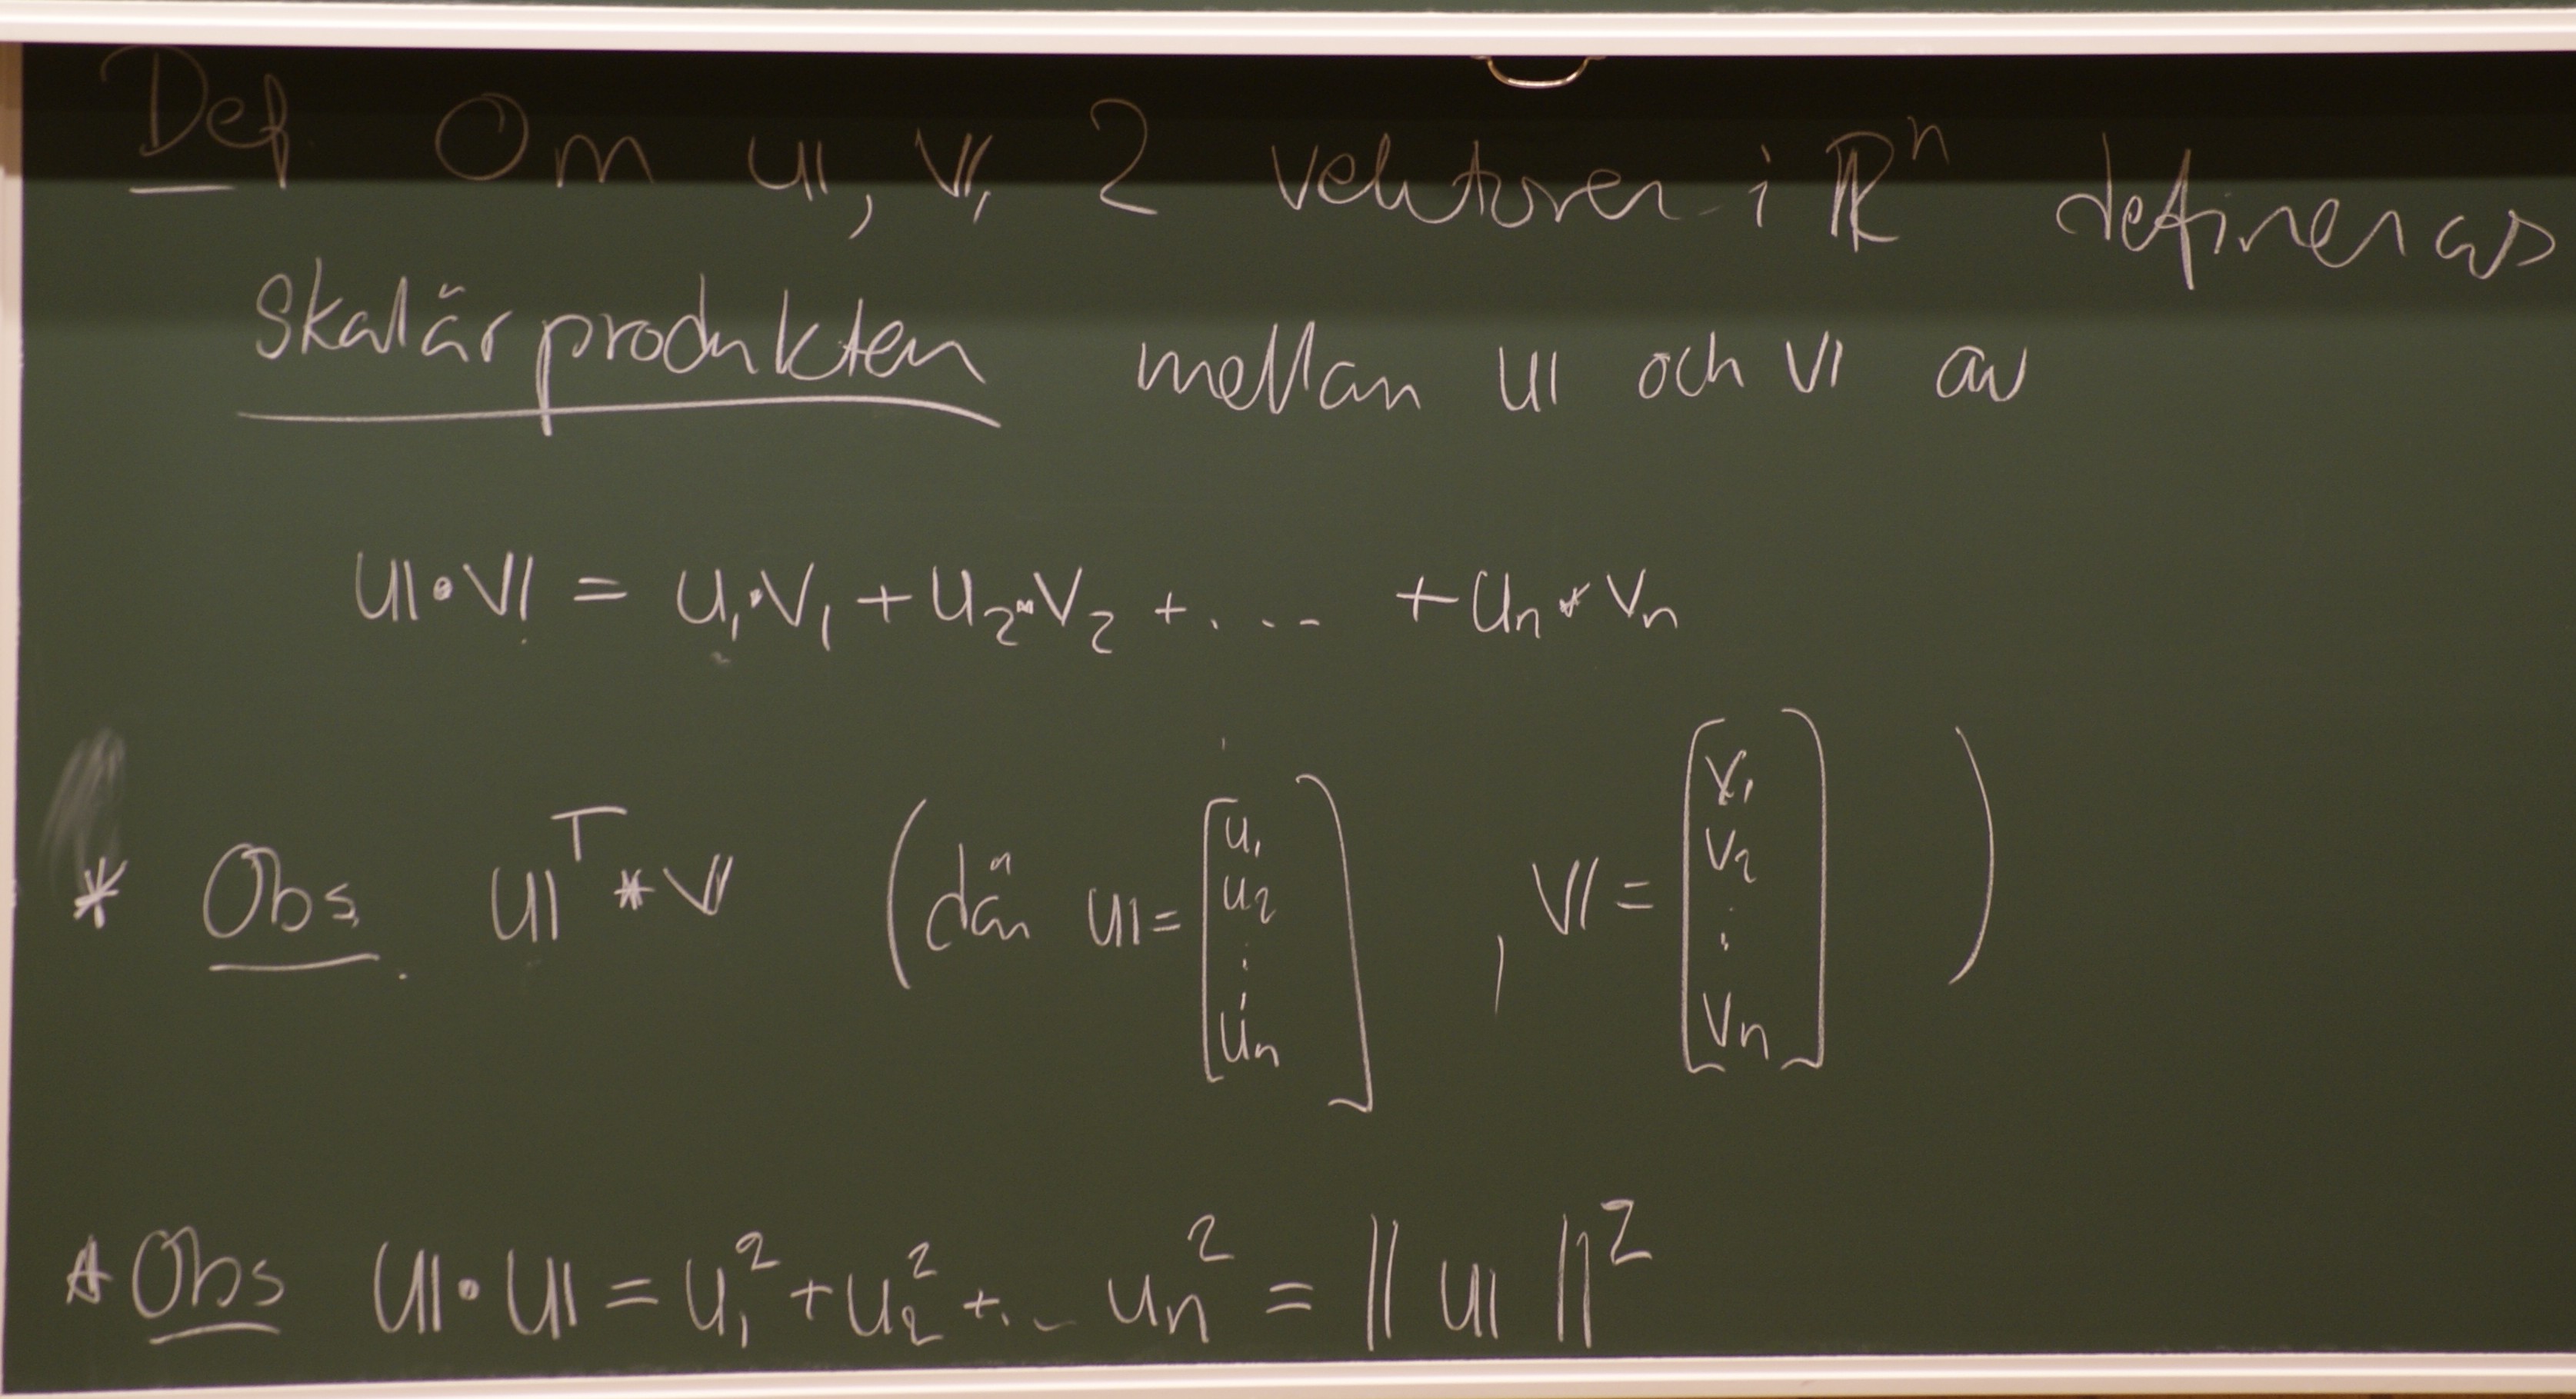 Def Om 𝕦, 𝕧, 2 vektorer i ℝⁿ defineras
skalärprodukten mellan 𝕦 och 𝕧 av
𝕦•𝕧 = u₁•v₁ + u₂•v₂ + ... + uₙ*vₙ
* Obs. 𝕦ᵀ * 𝕧 (där 𝕦 = [u₁ u₂ ⋮ uₙ], 𝕧 = [v₁ v₂ ⋮ vₙ])
* Obs 𝕦•𝕦 = u₁² + u₂² + ... uₙ² = ‖𝕦‖²